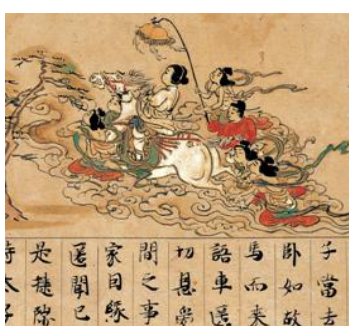 子當去
卧如故
馬而来
語車匿
切恩愛
間之事
家因緣
匿聞已
是揵陟
時太子